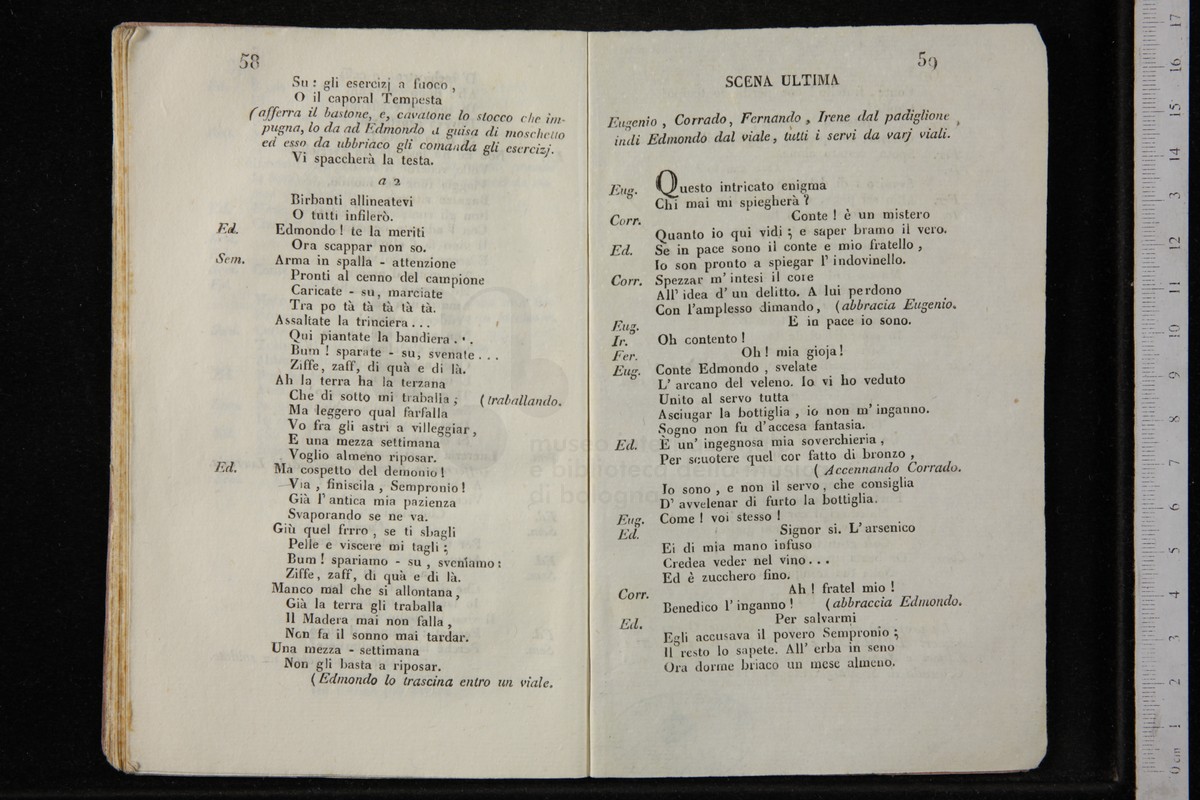 58
Su : gli esercizj a fuoco ,
O il caporal Tempesta
( afferra il bastone, e, cavatone lo stocco che im-
pugna, lo da ad Edmondo a guisa di moschetto
ed esso da ubbriaco gli comanda gli esercizj.
Vi spaccherà la testa.
a 2
Birbanti allineatevi
O tutti infilerò.
Ed. Edmondo ! te la meriti
Ora scappar non so.
Sem. Arma in spalla - attenzione
Pronti al cenno del campione
Caricate - su, marciate
Tra po tà tà tà tà tà.
Assaltate la trinciera . . .
Qui piantate la bandiera . . .
Bum ! sparate - su, svenate . . .
Ziffe, zaff, di quà e di là.
Ah la terra ha la terzana
Che di sotto mi traballa ; ( traballando.
Ma leggero qual farfalla
Vo fra gli astri a villeggiar,
E una mezza settimana
Voglio almeno riposar.
Ed. Ma cospetto del demonio !
Via , finiscila , Sempronio !
Già l' antica mia pazienza
Svaporando se ne va.
Giù quel frrro , se ti sbagli
Pelle e viscere mi tagli ;
Bum ! spariamo - su , sveniamo :
Ziffe, zaff, di quà e di là.
Manco mal che si allontana,
Già la terra gli traballa
Il Madera mai non falla ,
Non fa il sonno mai tardar.
Una mezza - settimana
Non gli basta a riposar.
( Edmondo lo trascina entro un viale.
59
SCENA ULTIMA
Eugenio , Corrado, Fernando , Irene dal padiglione ,
indi Edmondo dal viale, tutti i servi da varj viali.
Eug. Questo intricato enigma
Chi mai mi spiegherà ?
Corr. Conte ! è un mistero
Quanto io qui vidi ; e saper bramo il vero.
Ed. Se in pace sono il conte e mio fratello ,
Io son pronto a spiegar l' indovinello.
Corr. Spezzar m' intesi il core
All' idea d' un delitto. A lui perdono
Con l'amplesso dimando, ( abbracia Eugenio.
Eug. E in pace io sono.
Ir. Oh contento !
Fer. Oh ! mia gioja !
Eug. Conte Edmondo , svelate
L' arcano del veleno. Io vi ho veduto
Unito al servo tutta
Asciugar la bottiglia , io non m' inganno.
Sogno non fu d'accesa fantasia.
Ed. È un' ingegnosa mia soverchieria ,
Per scuotere quel cor fatto di bronzo ,
( Accennando Corrado.
Io sono , e non il servo, che consiglia
D' avvelenar di furto la bottiglia.
Eug. Come ! voi stesso !
Ed. Signor si. L' arsenico
Ei di mia mano infuso
Credea veder nel vino . . .
Ed è zucchero fino.
Corr. Ah ! fratel mio !
Benedico l' inganno ! ( abbraccia Edmondo.
Ed. Per salvarmi
Egli accusava il povero Sempronio ;
Il resto lo sapete. All' erba in seno
Ora dorme briaco un mese almeno.